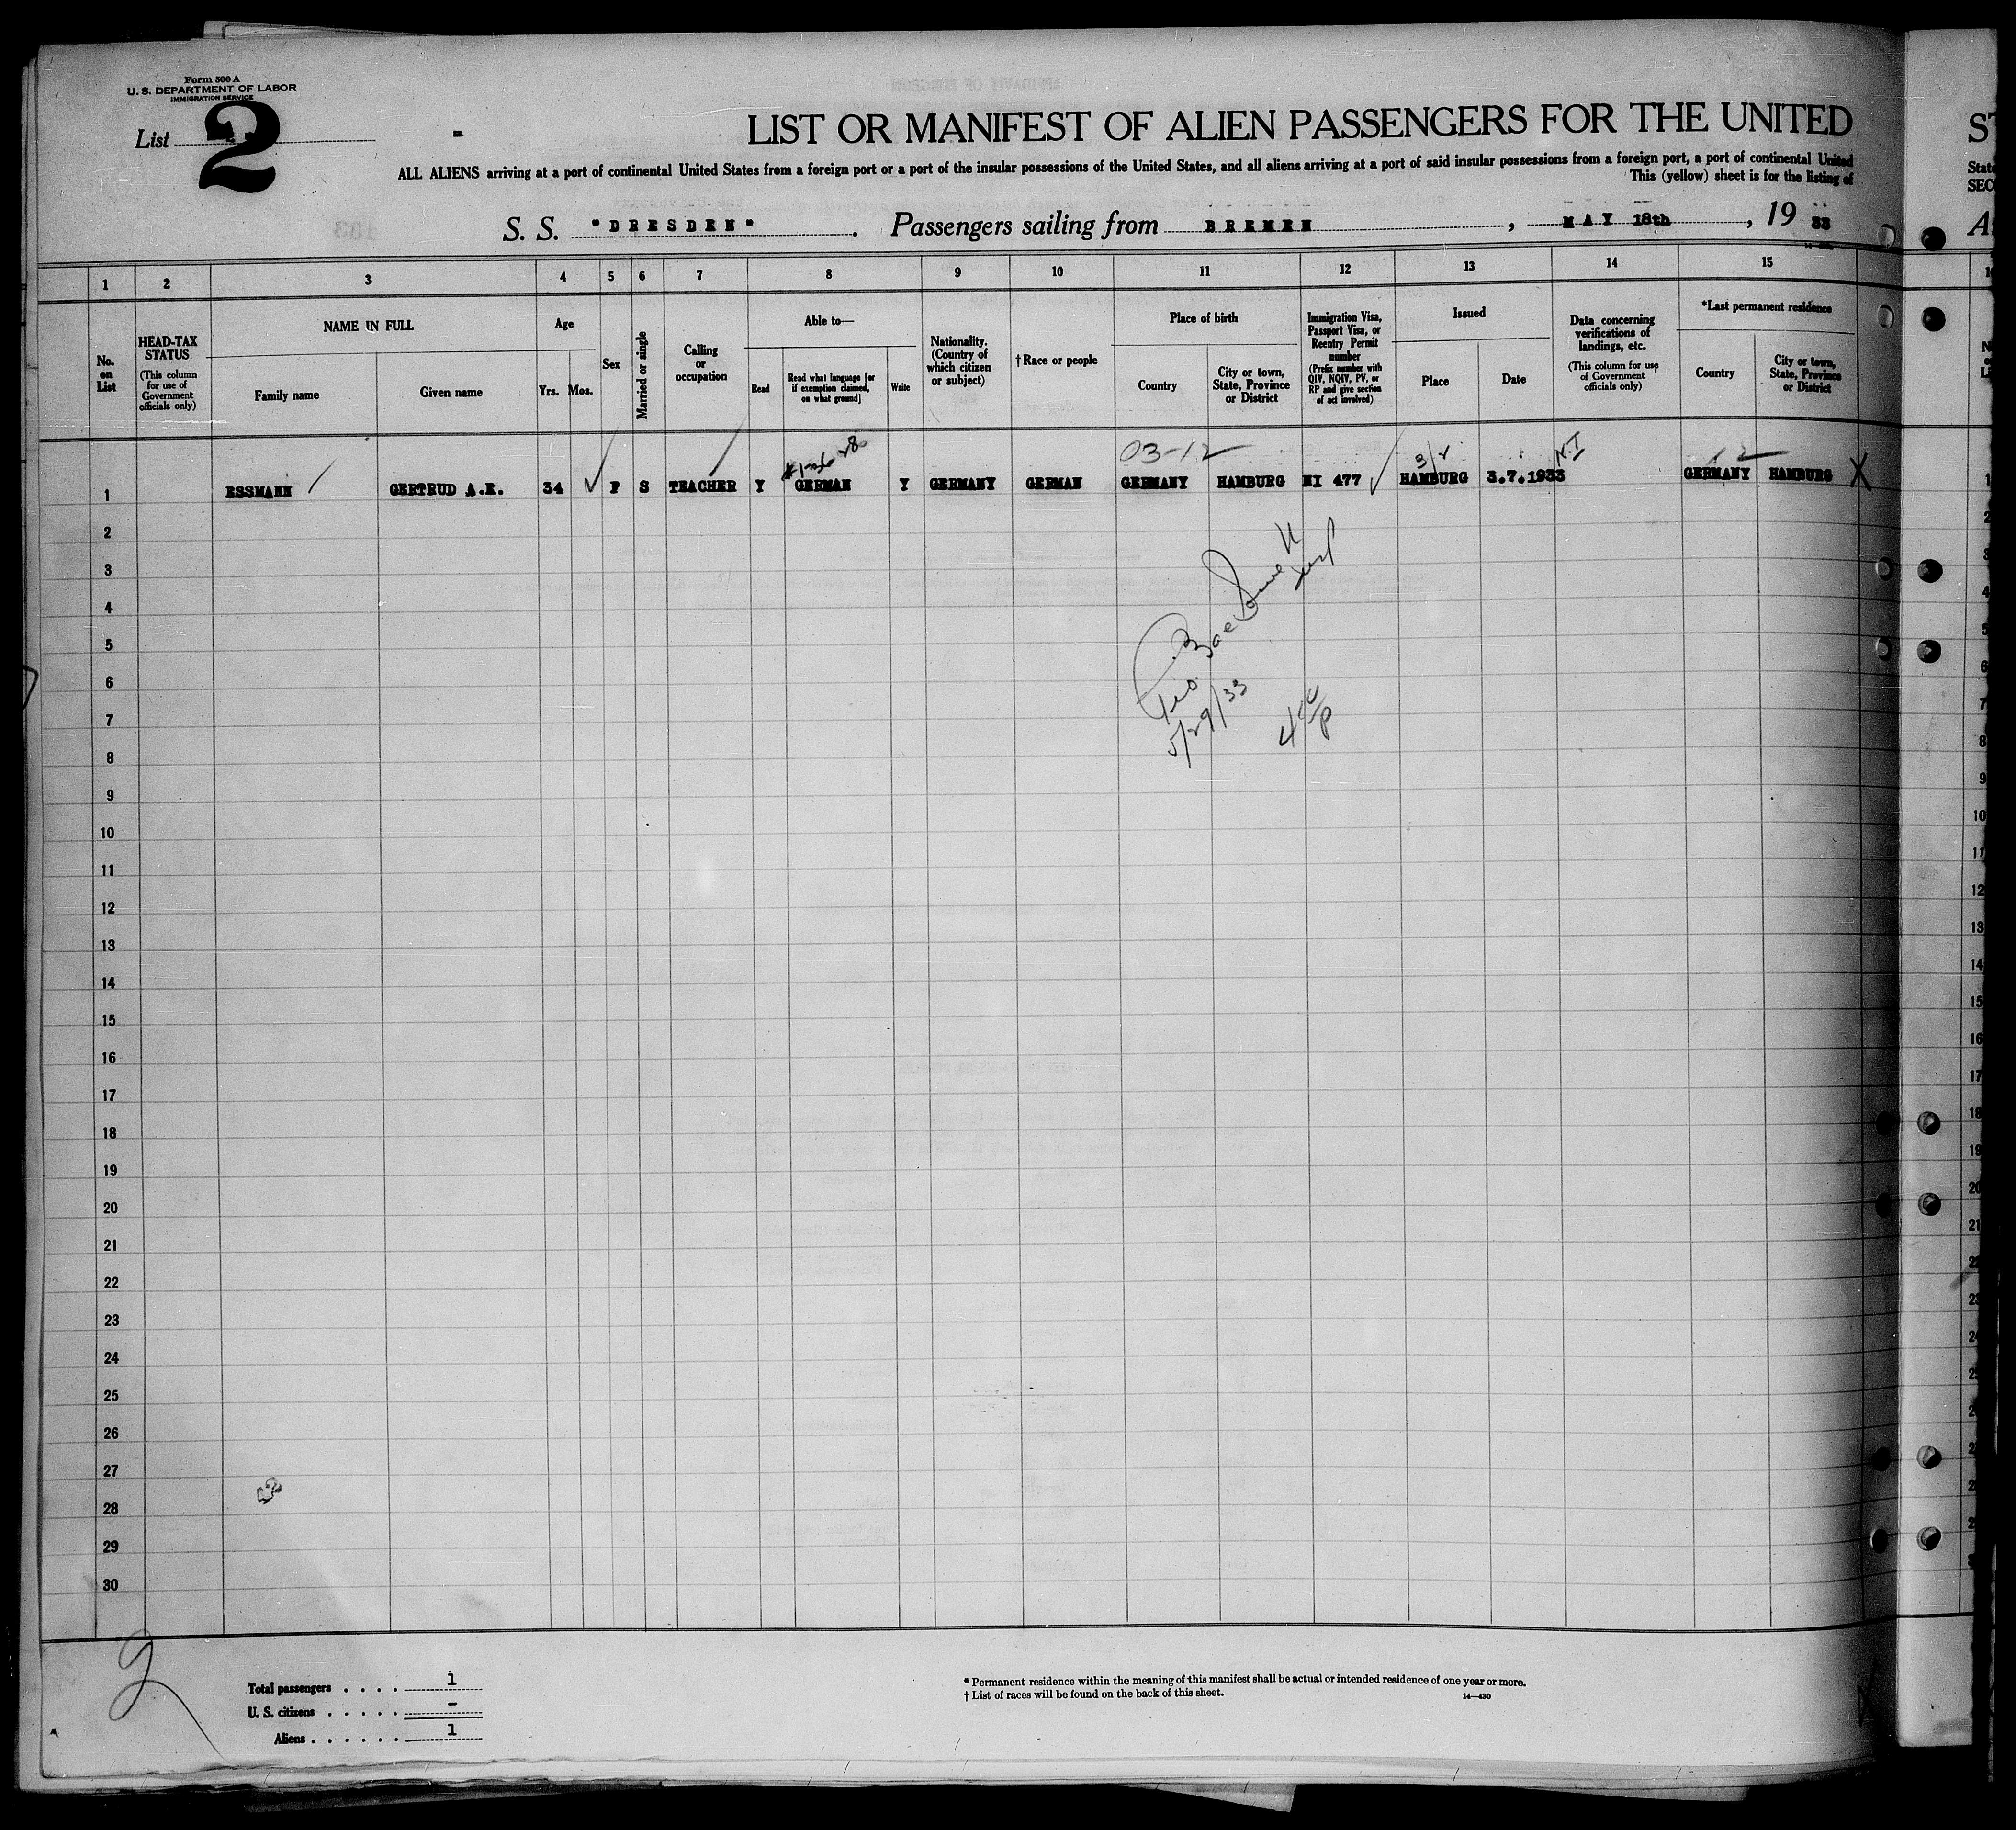 Form 500 A
U. S. DEPARTMENT OF LABOR
IMMIGRATION SERVICE
List 2
LIST OR MANIFEST OF ALIEN PASSENGERS FOR THE UNITED
ALL ALIENS arriving at a port of continental United States from a foreign port or a port of the insular possessions of the United States, and all aliens arriving at a port of said insular possessions from a foreign port, a port of continental United
This (yellow) sheet is for the listing of
S. S. "DRESDEN". Passengers sailing from BREMEN, MAY 18th, 19 33
1 2 3 4 5 6 7 8 9 10 11 12 13 14 15
No. on List
HEAD-TAX STATUS (This column for use of Government officials only)
NAME IN FULL
Family name
Given name
Age
Yrs. Mos.
Sex
Married or single
Calling or occupation
Able to—
Read
Read what language [or if exemption claimed, on what ground]
Write
Nationality. (Country of which citizen or subject)
† Race or people
Place of birth
Country
City or town, State, Province or District
Immigration Visa, Passport Visa, or Reentry Permit number (Prefix number with QIV, NQIV, PV, or RP and give section of act involved)
Issued
Place
Date
Data concerning verifications of landings, etc. (This column for use of Government officials only)
*Last permanent residence
Country
City or town, State, Province or District
03-12
1 ESSMANN GERTRUD A.R. 34 F S TEACHER Y GERMAN Y GERMANY GERMAN GERMANY HAMBURG NI 477 HAMBURG 3.7.1933 GERMANY HAMBURG X
2
3
4
5
6
7
8
9
10
11
12
13
14
15
16
17
18
19
20
21
22
23
24
25
26
27
28
29
30
5/29/33
2
Total passengers . . . . 1
U. S. citizens . . . . . -
Aliens . . . . . . 1
* Permanent residence within the meaning of this manifest shall be actual or intended residence of one year or more.
† List of races will be found on the back of this sheet.
14—430